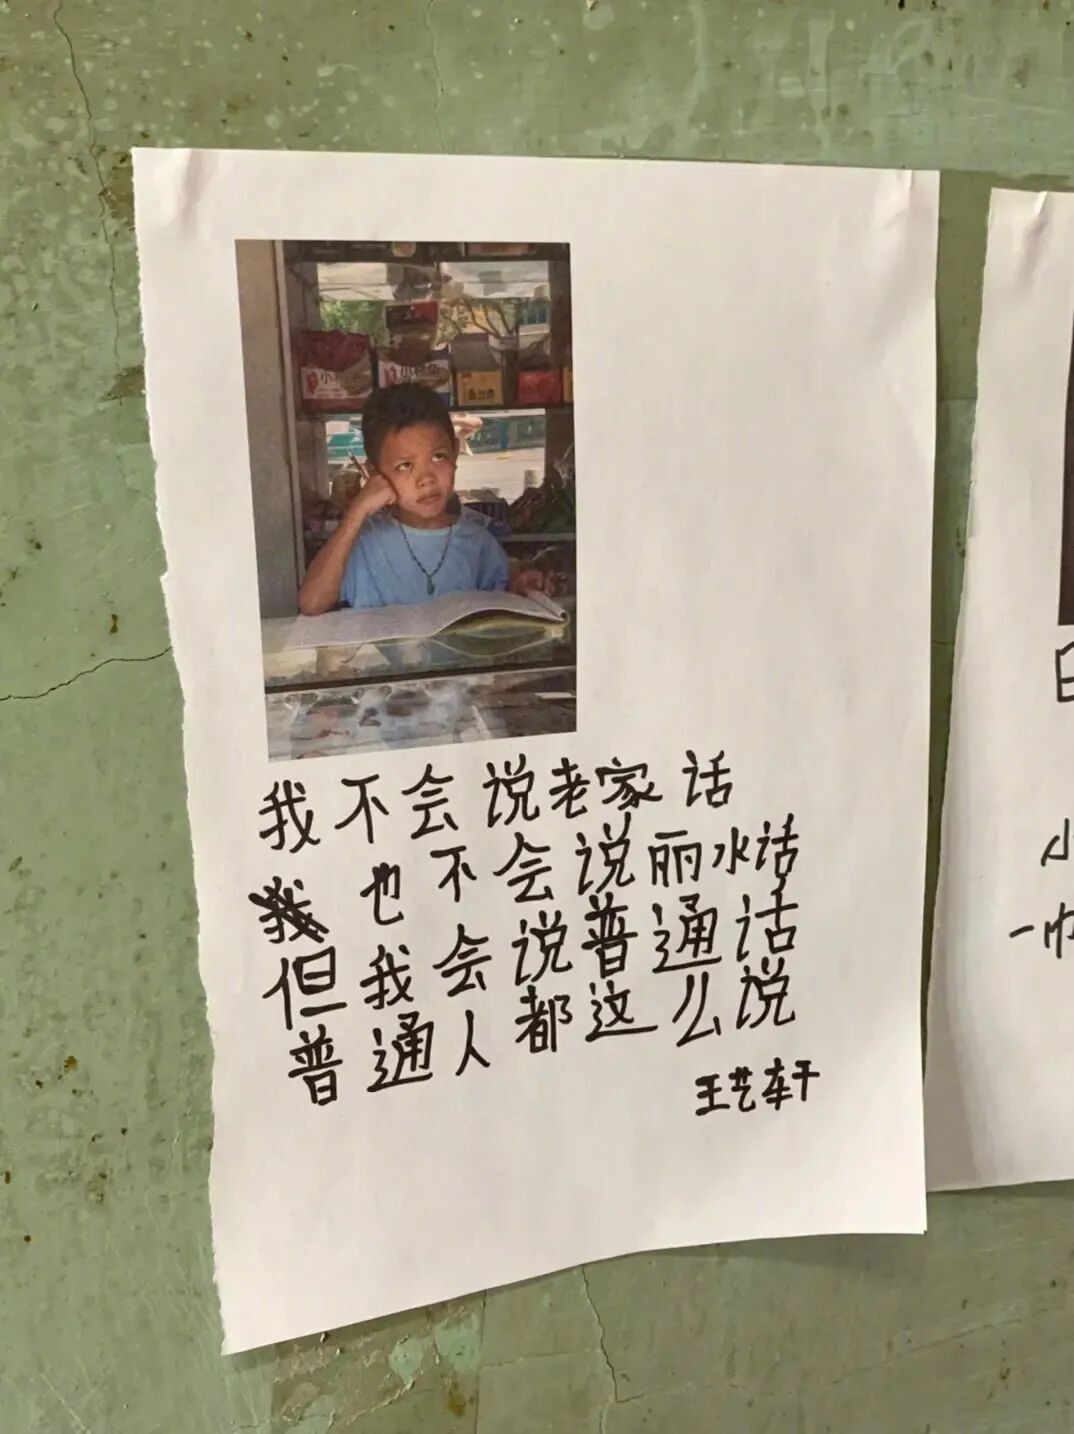 我不会说老家话
也不会说丽水话
但我会说普通话
普通人都这么说
王艺轩
小
一